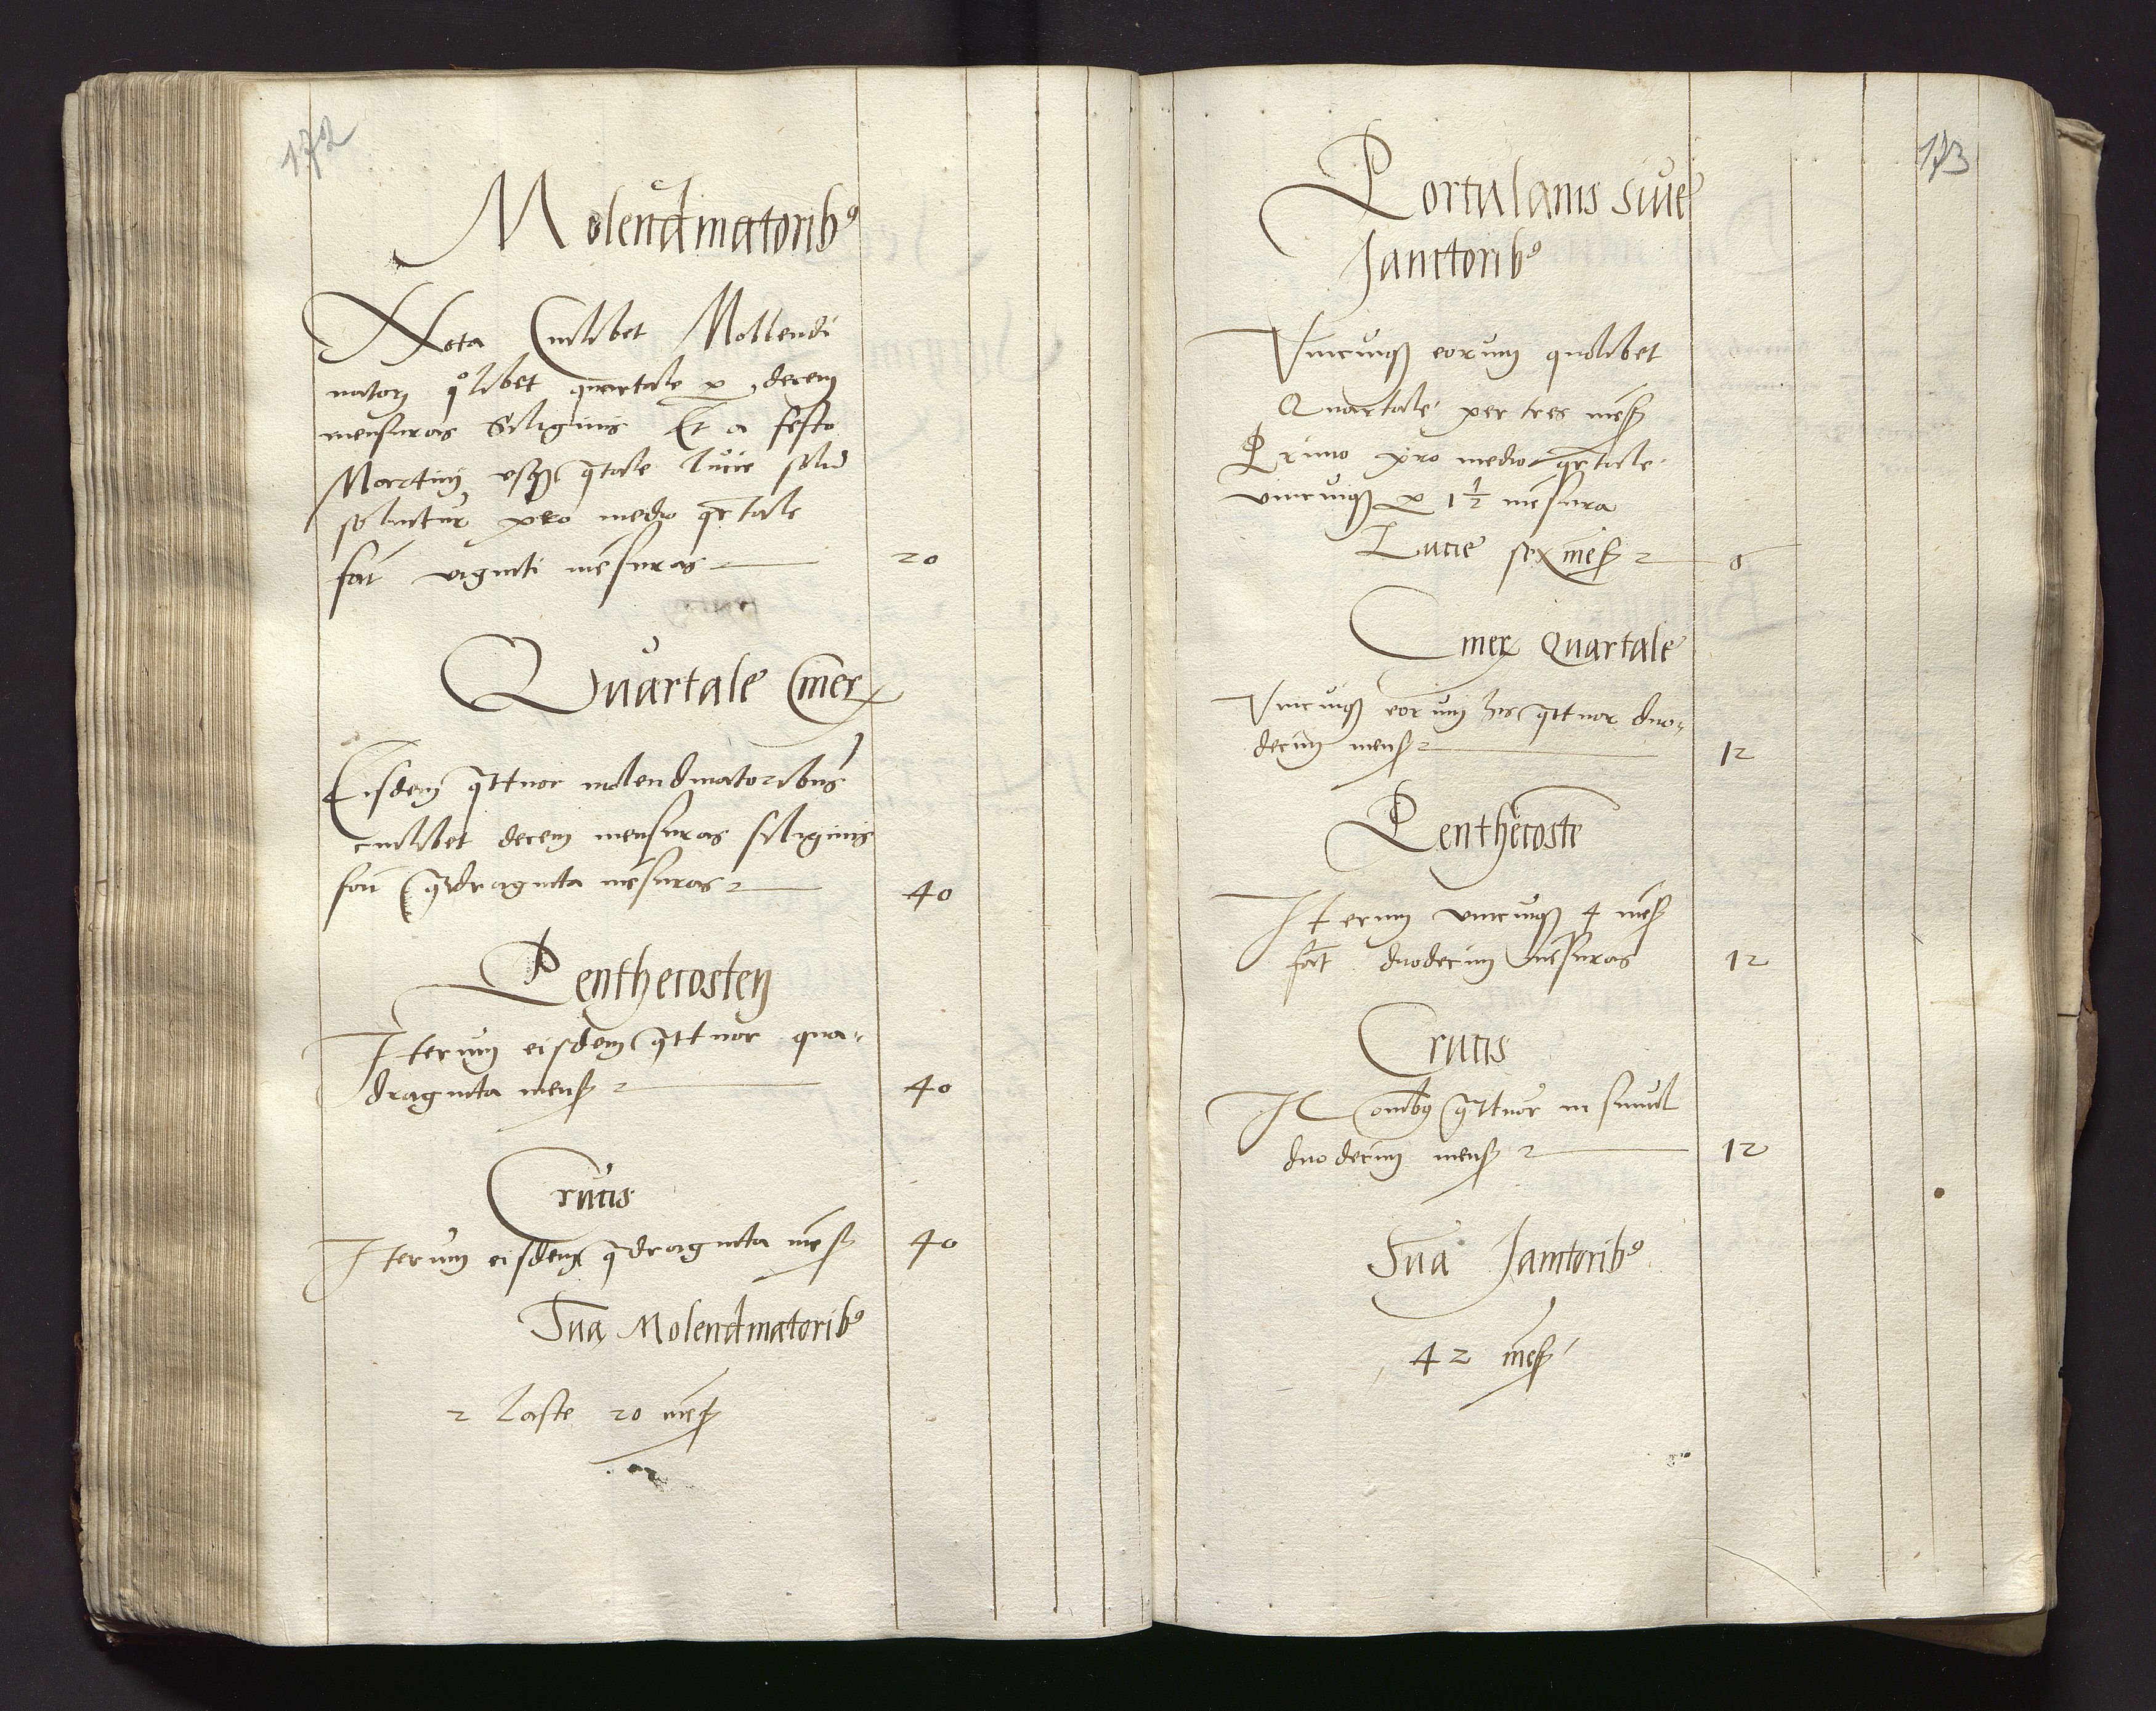 172
Molendinatorib9
Nota Cuilibet Mollendi
natorj qolibet quartale p decem
mensuras Siliginis Et a festo
Martinj vsq qtale lucie solid
soluitur pro medio qrtale
fat viginti me͂suras 20
Quartale Ciner
Eisdem qttuor molendinatoribus
cuilibet decem mensuras siliginis
fati qdraginta me͂suras 40
Penthecosten
Iterum eisdem qttuor qua-
draginta mens 40
Crucis
Iterum eisdem qdraginta mes 40
Sua Molendinatorib9
2 Laste 20 mes
173
Portulanis siue
Janitorib9
Vnicuiq eorum quolibet
Quartale per tres mes
Primo pro medio qrtale
vnicuiq p 1 1/2 mesura
Lucie sex mes 6
Ciner Quartale
Vnicuiq eorum his qttuor duo-
decim mens 12
Penthecoste
Iterum vnicuiq 4 mes
fat duodecim mesuras 12
Crucis
It omibq qttuor in simul
duodecim mens 12
Sua Janitorib9
42 mes